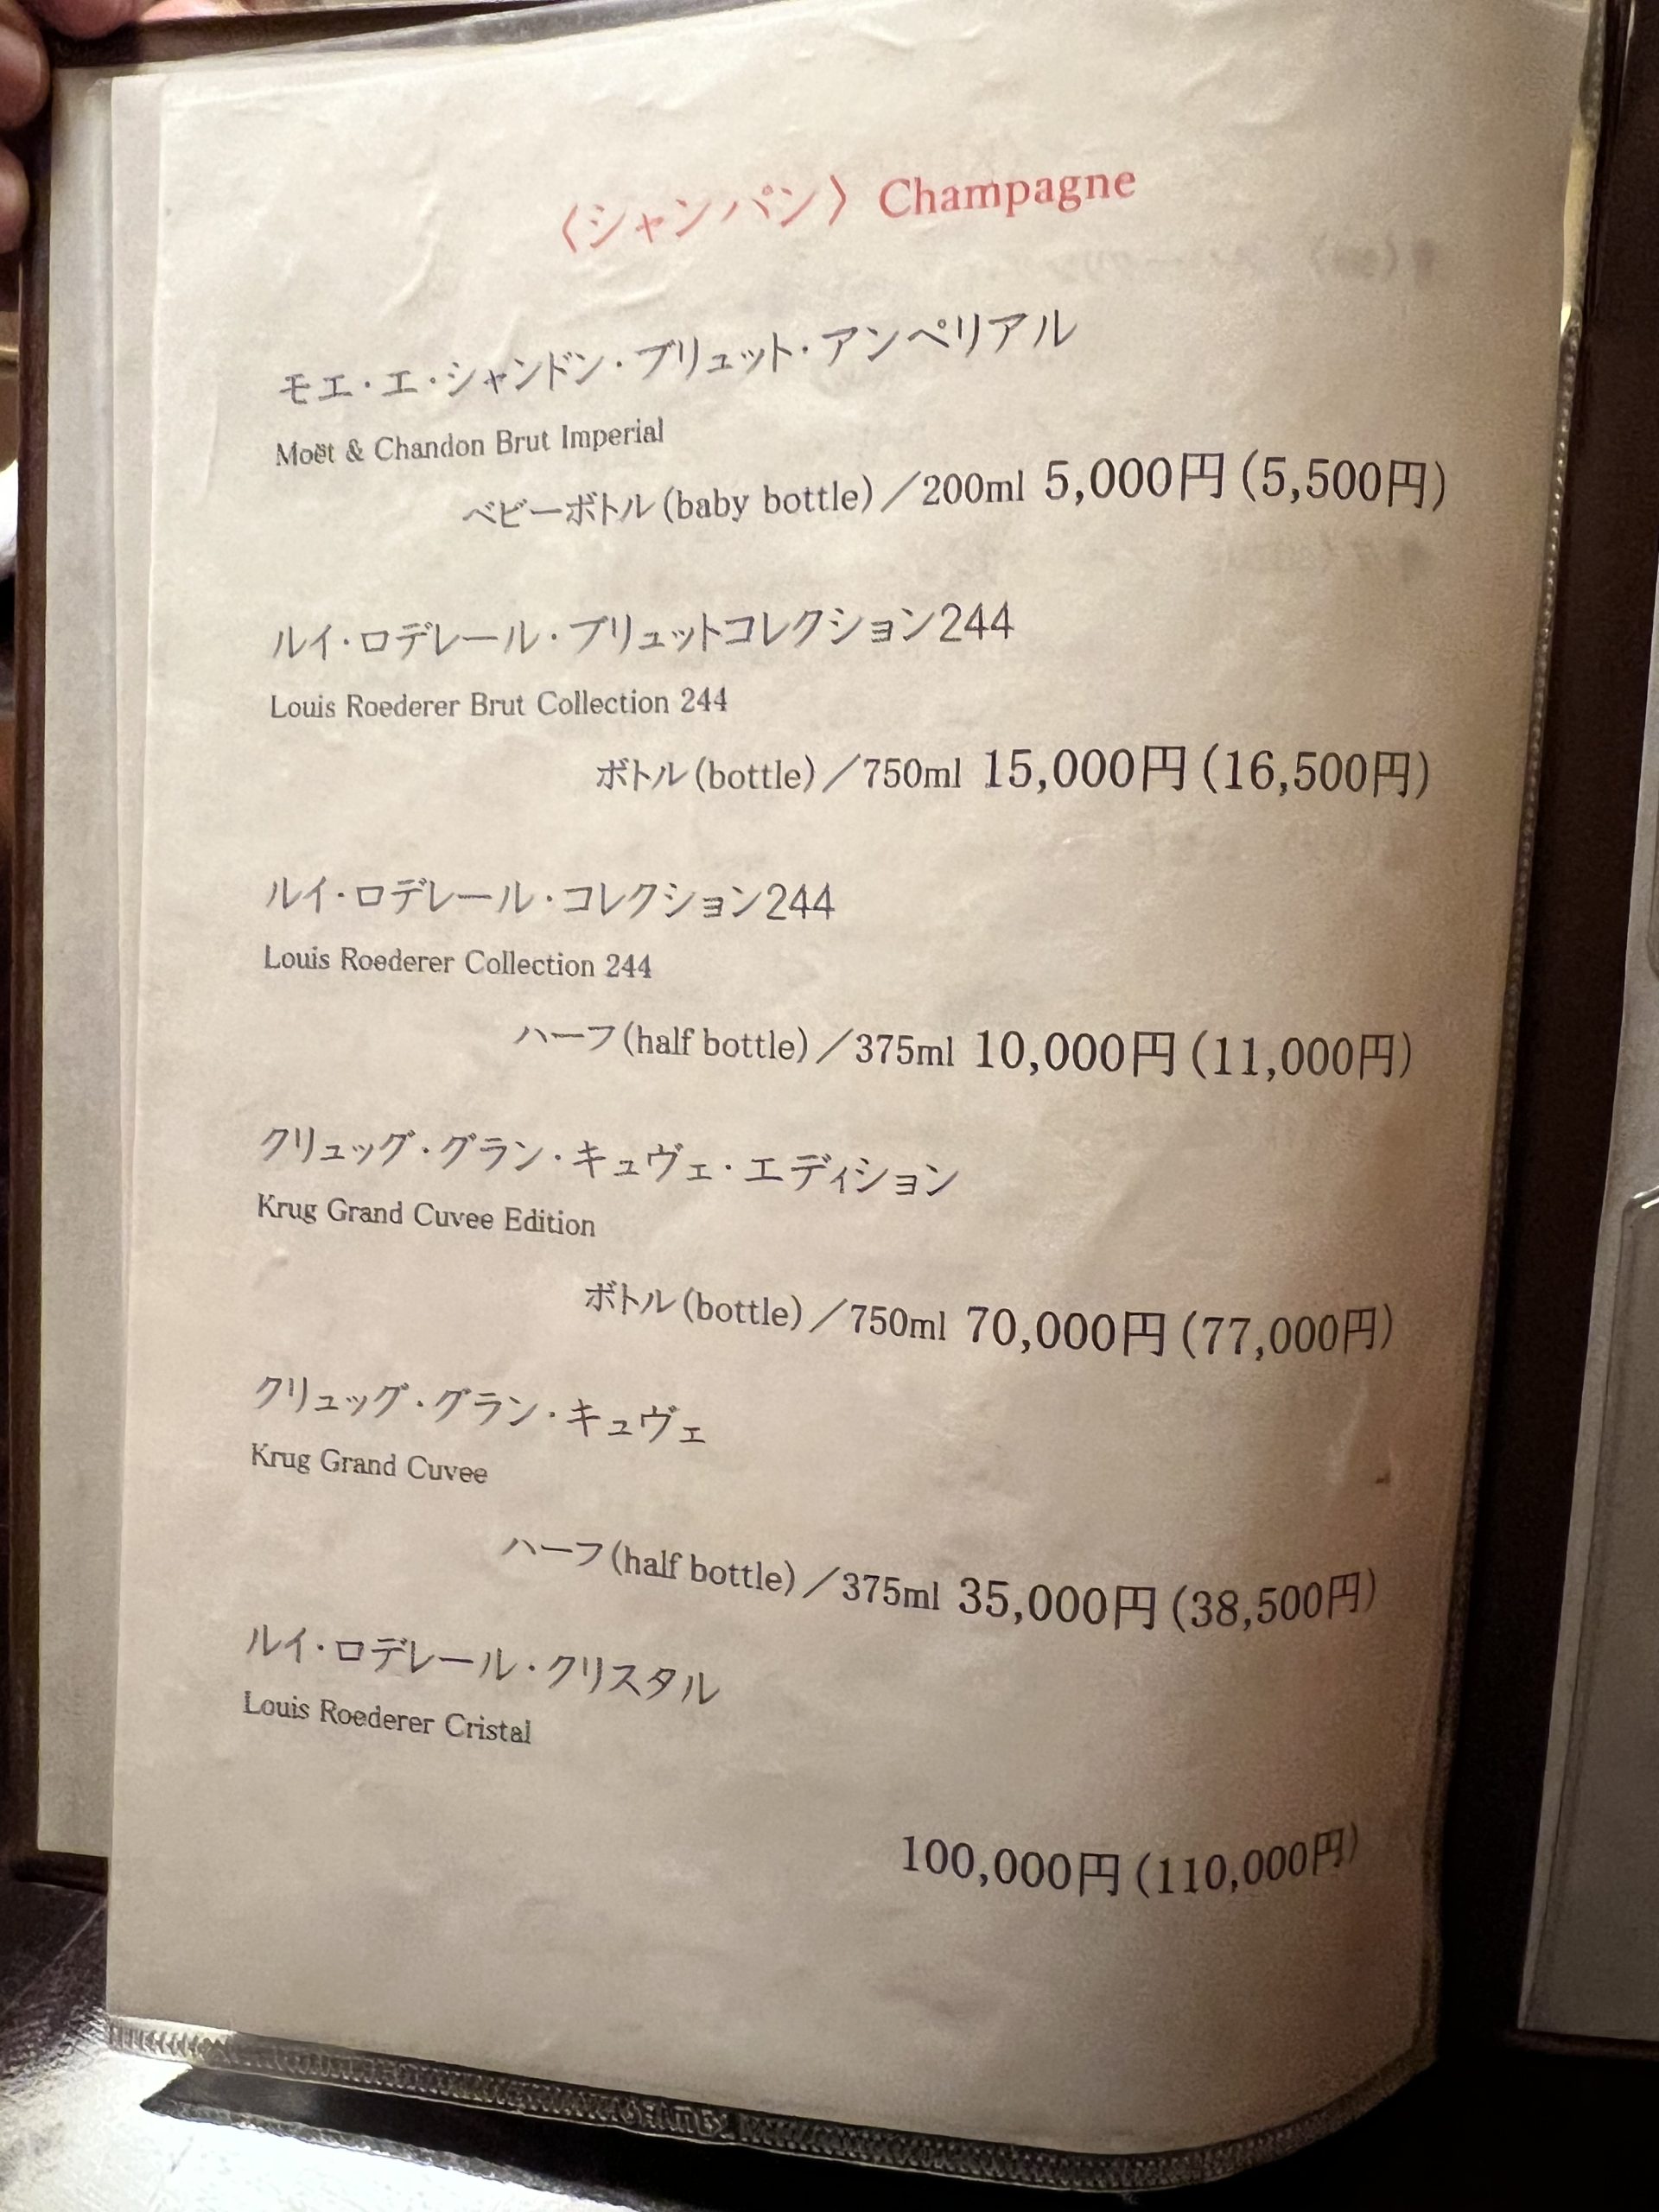 〈シャンパン〉 Champagne
モエ・エ・シャンドン・ブリュット・アンペリアル
Moët & Chandon Brut Imperial
ベビーボトル(baby bottle)／200ml 5,000円(5,500円)
ルイ・ロデレール・ブリュットコレクション244
Louis Roederer Brut Collection 244
ボトル(bottle)／750ml 15,000円(16,500円)
ルイ・ロデレール・コレクション244
Louis Roederer Collection 244
ハーフ(half bottle)／375ml 10,000円(11,000円)
クリュッグ・グラン・キュヴェ・エディション
Krug Grand Cuvee Edition
ボトル(bottle)／750ml 70,000円(77,000円)
クリュッグ・グラン・キュヴェ
Krug Grand Cuvee
ハーフ(half bottle)／375ml 35,000円(38,500円)
ルイ・ロデレール・クリスタル
Louis Roederer Cristal
100,000円(110,000円)